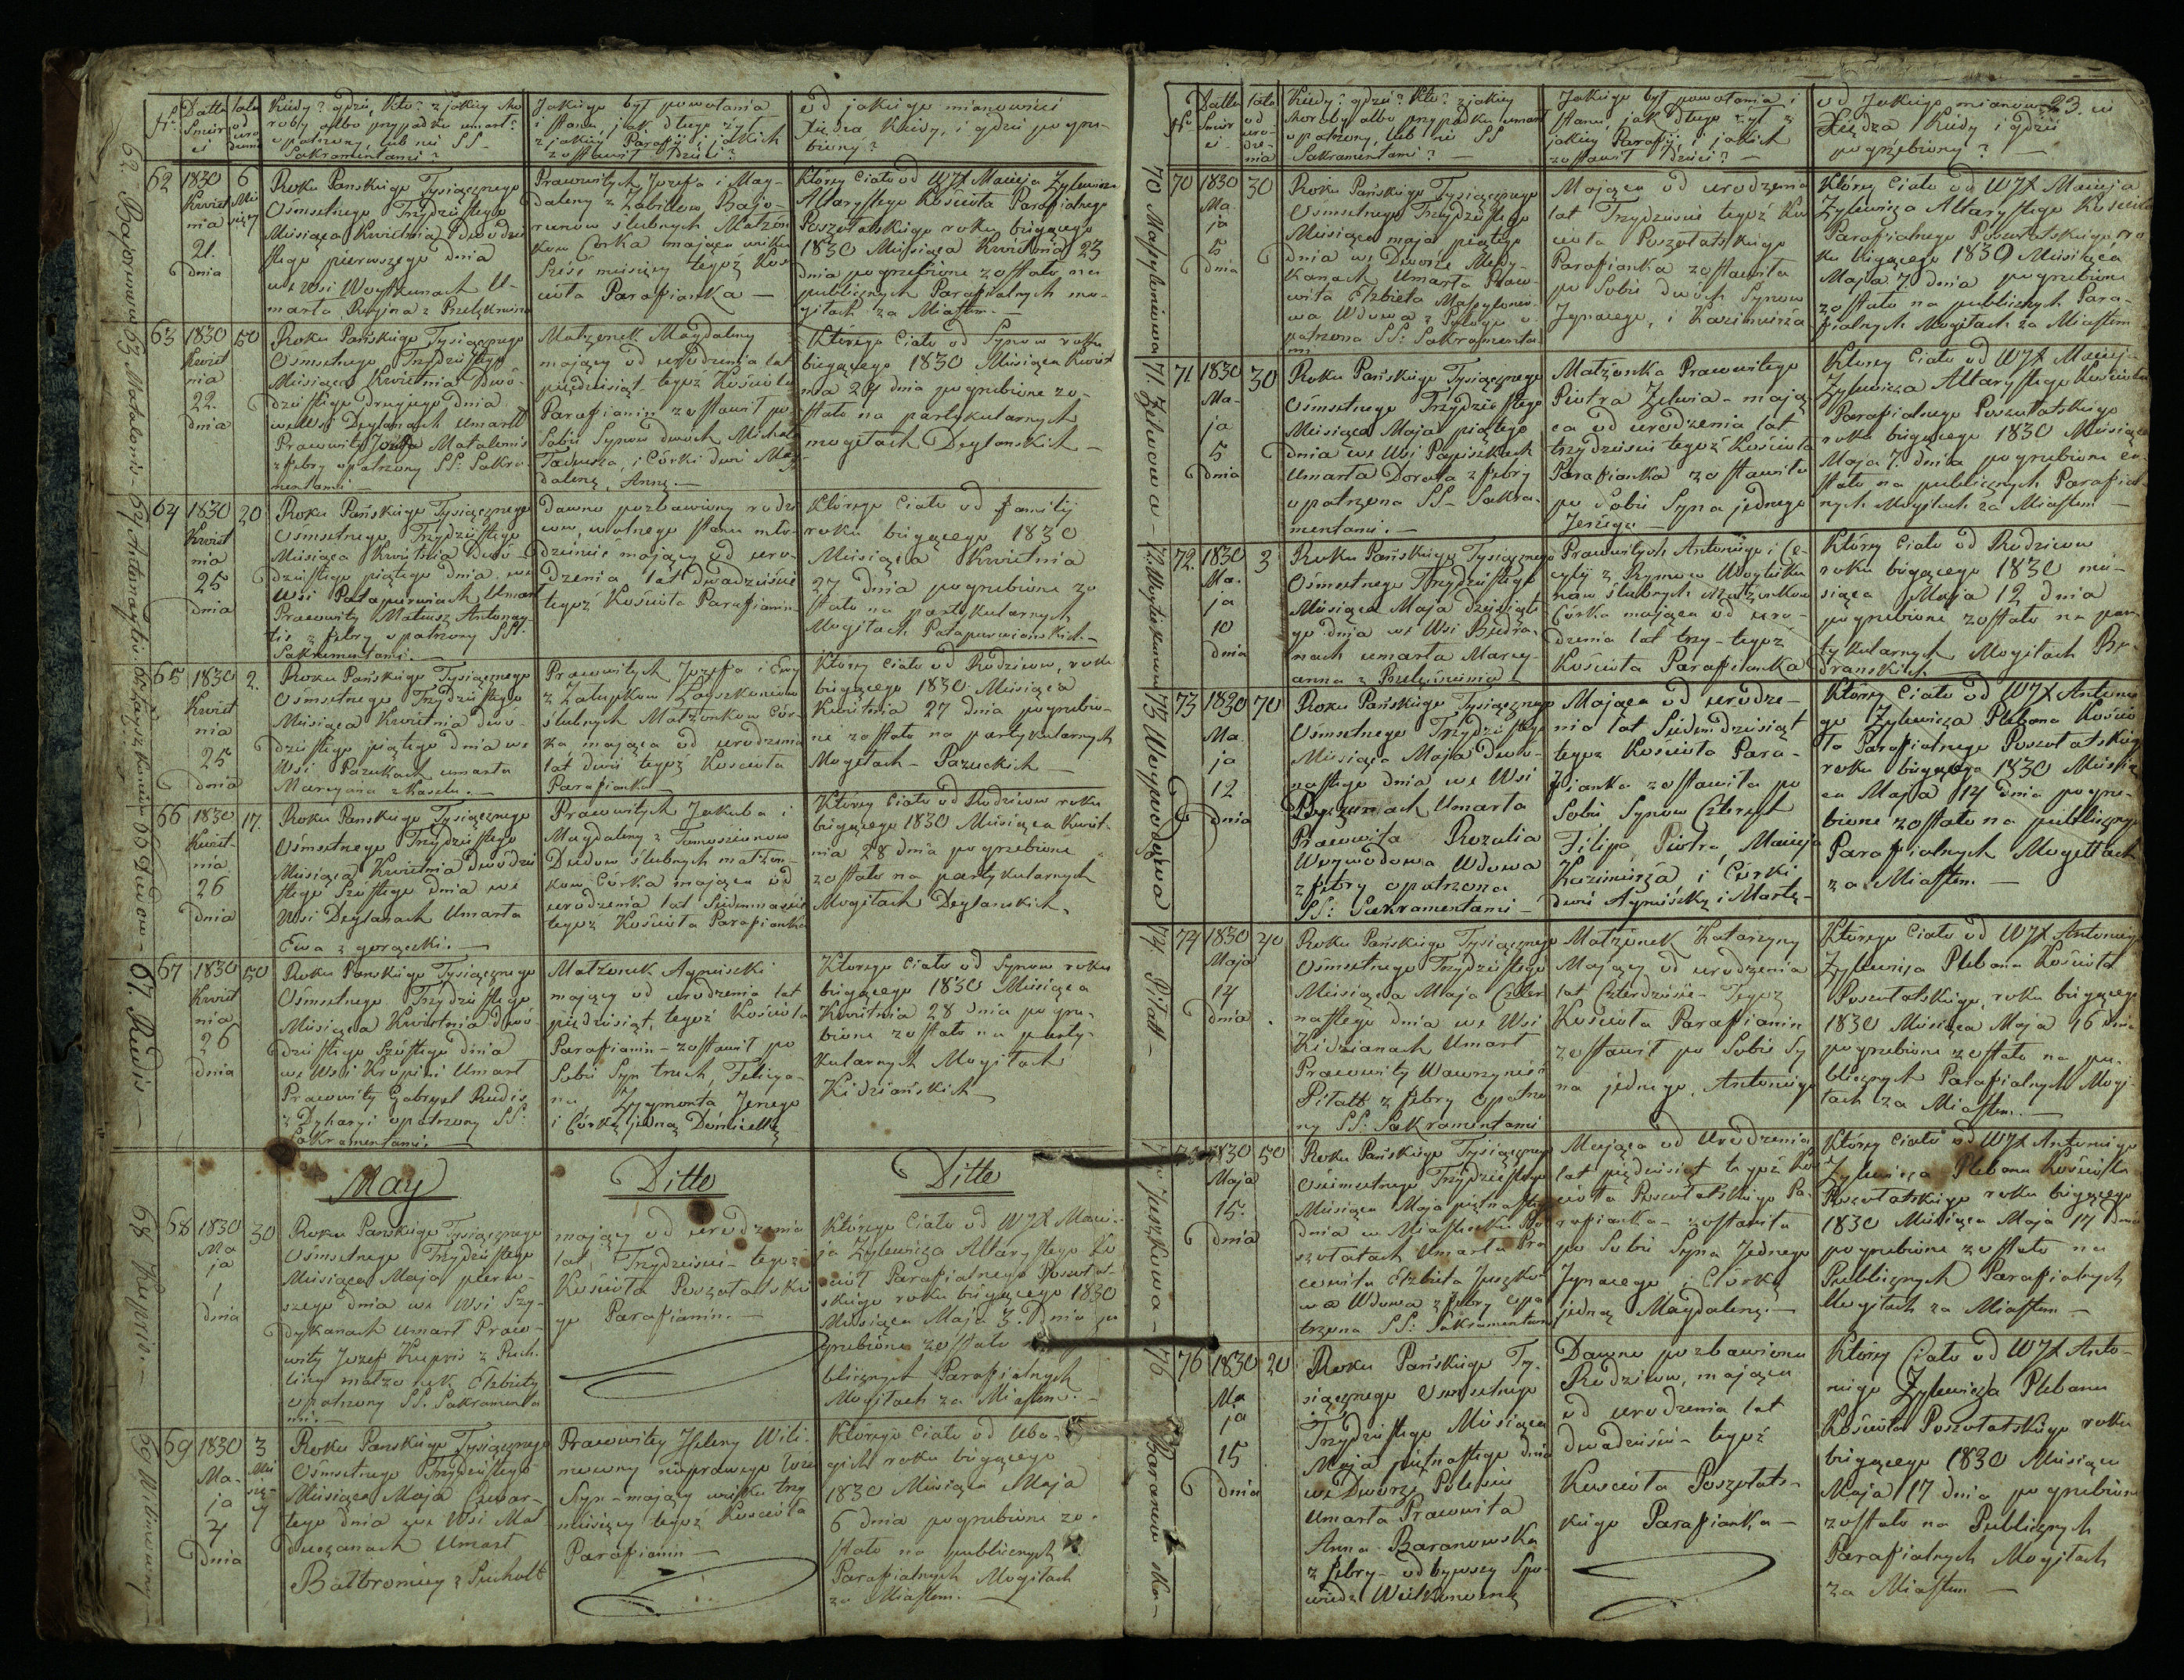 Nr.
Datta Śmierci
lata od urodzenia
Kiedy? gdzie, Kto? z jakiey choroby albo przypadku umarł? opatrzony, lub nie SS. Sakramentami?
Jakiego był powołania i stanu, jak długo żył z jakiey Parafij, i jakich zostawił Dzieci?
od jakiego mianowicie Xiędza Kiedy, i gdzie pogrzebiony?
62
1830 Kwietnia 21. dnia
6 Miesięcy
Roku Pańskiego Tysiącznego
Ośmsetnego Trzydziestego
Miesiąca Kwietnia dwudzie
stego pierwszego dnia
we Wsi Woytkunach U-
marła Regina z
Prawowitych Jozefa i Mag-
daleny z Bajo-
runow ślubnych Małżon
kow Corka mająca wieku
Sześć miesięcy tegoż Koś
cioła Parafianka —
Ktorey Ciało od WJX Macieja Zylewicza
Altarystego Kościoła Parafialnego
Poszołatskiego roku biegącego
1830 Miesiąca Kwietnia 23
dnia pogrzebione zostało na
publicznych Parafialnych mo-
giłach za Miastem. —
63
1830 Kwietnia 22. dnia
50
Roku Pańskiego Tysiącznego
Ośmsetnego Trzydziestego
Miesiąca Kwietnia Dwó-
dziestego drugiego dnia
we Wsi Deglanach umarł
Prawowity Jozef Matalonis
z febry opatrzony SS: Sakra-
mentami —
Małżonek Magdaleny
mający od urodzenia lat
pięćdziesiąt tegoż Kościoła
Parafianin zostawił po
Sobie Synow dwoch Michała
Tadeusza, i Córki dwie Mag
dalenę, Annę. —
Ktorego Ciało od Synow roku
biegącego 1830 Miesiąca Kwiet
nia 24 dnia pogrzebione zo-
stało na partykularnych
mogiłach Deglanskich —
64
1830 Kwietnia 25 dnia
20
Roku Pańskiego Tysiącznego
Ośmsetnego Trzydziestego
Miesiąca Kwietnia Dwó-
dziestego piątego dnia we
Wsi Patapurwiach Umarł
Prawowity Mateusz Antonay-
tis z febry opatrzony SS.
Sakramentami. —
Dawno pozbawiony rodzi
cow, wolnego stanu mło-
dzieniec mający od uro-
dzenia lat dwadzieście
tegoż Kościoła Parafianin
Ktorego Ciało od familij
roku biegącego 1830
Miesiąca Kwietnia
27 dnia pogrzebione zo
stało na partykularnych
Mogiłach Patapurwianskich —
65
1830 Kwietnia 25 dnia
2.
Roku Pańskiego Tysiącznego
Ośmsetnego Trzydziestego
Miesiąca Kwietnia dwó-
dziestego piątego dnia we
Wsi Pazukach umarła
Maryjana z Kaszlu. —
Prawowitych Jozefa i Ewy
z Zatupkow
ślubnych Małżonkow Cór-
ka mająca od urodzenia
lat dwie tegoż Kościoła
Parafianka
Ktorey Ciało od Rodzicow, roku
biegącego 1830 Miesiąca
Kwietnia 27 dnia pogrzebio-
ne zostało na partykularnych
Mogiłach — Pazuckich —
66
1830 Kwietnia 26 dnia
17.
Roku Pańskiego Tysiącznego
Ośmsetnego Trzydziestego
Miesiąca Kwietnia dwódzie
stego Szóstego dnia we
Wsi Deglanach Umarła
Ewa z gorączki. —
Prawowitych Jakuba i
Magdaleny z Tomuszunow
Dudow ślubnych małżon-
kow Córka mająca od
urodzenia lat Siedmnaście
tegoż Kościoła Parafianka
Ktorey Ciało od Rodzicow roku
biegącego 1830 Miesiąca Kwiet-
nia 28 dnia pogrzebione
zostało na partykularnych
Mogiłach Deglanskich.
67
1830 Kwietnia 26 dnia
50
Roku Pańskiego Tysiącznego
Ośmsetnego Trzydziestego
Miesiąca Kwietnia dwó
dziestego Szóstego dnia
we Wsi Kropini Umarł
Prawowity Gabryel Rudis
z Dyharyi opatrzony SS:
Sakramentami. —
Małżonek Agnieszki
mający od urodzenia lat
pięćdziesiąt, tegoż Kościoła
Parafianin — zostawił po
Sobie Syn trzech, Felicya-
na Zygmonta Jerzego
i Córkę jedną Dominellę
Ktorego Ciało od Synow roku
biegącego 1830 Miesiąca
Kwietnia 28 dnia pogrze-
bione zostało na party-
kularnych Mogiłach
Kidziańskich —
May
Ditto
Ditto
68
1830 Maja 1 dnia
30
Roku Pańskiego Tysiącznego
Ośmsetnego Trzydziestego
Miesiąca Maja pierw-
szego dnia we Wsi Szy-
dykanach umarł Prawo-
wity Jozef Kupris z Puch-
liny małżonek Elżbiety
opatrzony SS. Sakramenta
mi. —
mający od urodzenia
lat Trzydzieści — tegoż
Kościoła Poszołatskie
go Parafianin. —
Ktorego Ciało od WJX Macie-
ja Zylewicza Altarystego Ko
ścioł Parafialnego Poszołat-
skiego roku biegącego 1830
Miesiąca Maja 3. Dnia po
grzebione zostało
blicznych Parafialnych
Mogiłach za Miastem. —
69
1830 Maja 4 dnia
3 Miesięcy
Roku Pańskiego Tysiącznego
Ośmsetnego Trzydziestego
Miesiąca Maja Czwar-
tego dnia we Wsi Mal-
duczanach Umarł
Bałtromiey z Suchoł
Prawowitey Heleny Wili-
mowny nieprawego łoża
Syn — mający wieku trzy
miesięcy tegoż Kościoła
Parafianin —
Ktorego Ciało od Ubo-
gich roku biegącego
1830 Miesiąca Maja
6 dnia pogrzebione zo-
stało na publicznych
Parafialnych Mogiłach
za Miastem. —
62. Bajorunowa 63 Matalonis — 64 Antonaytis — 66 Dudow — 67. Rudis —
68 Kupris. —
69 Wilimowny —
23.
Nr.
Datta Śmierci
lata od urodzenia
Kiedy? gdzie? Kto? z jakiey choroby albo przypadku umarł opatrzony, lub nie SS Sakramentami? —
Jakiego był powołania i stanu, jak długo żył z jakiey Parafij, i jakich zostawił Dzieci? —
od Jakiego mianowicie Xiędza Kiedy i gdzie pogrzebiony? —
70
1830 Maja 5 dnia
30
Roku Pańskiego Tysiącznego
Ośmsetnego Trzydziestego
Miesiąca maja piątego
dnia we Dworze Medy-
kanach Umarła Prawo-
wita Elżbieta Maspylenio-
wa Wdowa z Połogu o
patrzona SS: Sakramenta
mi
Mająca od urodzenia
lat Trzydzieście tegoż Koś
cioła Poszołatskiego
Parafianka zostawiła
po Sobie dwóch Synow
Jgnacego, i Kazimierza
Ktorey Ciało od WJX Macieja
Zylewicza Altarystego Kościoła
Parafialnego Poszołatskiego ro
ku biegącego 1830 Miesiąca
Maja 7. dnia pogrzebione
zostało na publicznych Para-
fialnych Mogiłach za Miastem
71
1830 Maja 5 dnia
30
Roku Pańskiego Tysiącznego
Ośmsetnego Trzydziestego
Miesiąca Maja piątego
dnia we Wsi Papiszkach
Umarła Dorota z febry
opatrzona SS. Sakra-
mentami. —
Małżonka Prawowitego
Piotra Zelwia — mają-
ca od urodzenia lat
trzydzieści tegoż Kościoła
Parafianka zostawiła
po Sobie Syna jednego
Jerzego —
Ktorey Ciało od WJX Macieja
Zylewicza Altarystego Kościoła
Parafialnego Poszołatskiego
roku biegącego 1830 Miesiąca
Maja 7. dnia pogrzebione zo-
stało na publicznych Parafial-
nych Mogiłach za Miastem —
72.
1830 Maja 10 dnia
3
Roku Pańskiego Tysiącznego
Ośmsetnego Trzydziestego
Miesiąca Maja dziesiąte
go dnia we Wsi Budra-
nach umarła Mary-
anna z
Prawowitych Antoniego i Ce-
cylij z Rymow Woytieku
now ślubnych Małżonkow
Córka mająca od uro-
dzenia lat trzy — tegoż
Kościoła Parafianka
Ktorey Ciało od Rodzicow
roku biegącego 1830 mie-
siąca Maja 12 dnia
pogrzebione zostało na par
tykularnych Mogiłach Bu-
dranskich.
73
1830 Maja 12. dnia
70
Roku Pańskiego Tysiącznego
Ośmsetnego Trzydziestego
Miesiąca Maja dwó-
nastego dnia we Wsi
Umarła
Prawowita Rozalia
Woywodowa Wdowa
z febry opatrzona
SS: Sakramentami —
Mająca od urodze-
nia lat Siedmdziesiąt
tegoż Kościoła Para-
fianka zostawiła po
Sobie Synow Czterech
Filipa, Piotra, Macieja
Kazimierza i Córki
dwie Agnieszkę i Martę —
Ktorey Ciało od WJX Antonie
go Zylewicza Plebana Kościo
ła Parafialnego Poszołatskiego
roku biegącego 1830 Miesią
ca Maja 14 dnia pogrze-
bione zostało na publicznych
Parafialnych Mogiłach
za Miastem —
74
1830 Maja 14 dnia
40
Roku Pańskiego Tysiącznego
Ośmsetnego Trzydziestego
Miesiąca Maja Czter
nastego dnia we Wsi
Kidzianach Umarł
Prawowity Wawrzyniec
Piłatt z febry opatrzo
ny SS: Sakramentami
Małżonek Katarzyny
Mający od urodzenia
lat Czterdzieście — Tegoż
Kościoła Parafianin
zostawił po Sobie Sy
na jednego, Antoniego
Ktorego Ciało od WJX Antoniego
Zylewicza Plebana Kościoła
Poszołatskiego, roku biegącego
1830 Miesiąca Maja 16 dnia
pogrzebione zostało na pu-
blicznych Parafialnych Mogi-
łach za Miastem. —
75
1830 Maja 15. dnia
50
Roku Pańskiego Tysiącznego
Ośmsetnego Trzydziestego
Miesiąca Maja piętnastego
dnia w Miasteczku Po
szołatach Umarła Pra
wowita Elżbieta Juszko-
wa Wdowa z febry opa
trzona SS: Sakramentami
Mająca od Urodzenia
lat pięćdziesiąt tegoż Koś
cioła Poszołatskiego Pa-
rafianka — zostawiła
po Sobie Syna Jednego
Jgnacego i Córkę
jedną Magdalenę. —
Ktorey Ciało od WJX Antoniego
Zylewicza Plebana Kościoła
Poszołatskiego roku biegącego
1830 Miesiąca Maja 17 dnia
pogrzebione zostało na
Publicznych Parafialnych
Mogiłach za Miastem —
76
1830 Maja 15 dnia
20
Roku Pańskiego Ty-
siącznego Ośmsetnego
Trzydziestego Miesiąca
Maja piętnastego dnia
we Dworze Polesiu
Umarła Prawowita
Anna Baranowska
z febry — odbywszy Spo-
wiedź Wielkanocną
Dawno pozbawiona
Rodzicow, mająca
od urodzenia lat
dwadzieście — tegoż
Kościoła Poszołats-
kiego Parafianka —
Ktorey Ciało od WJX Anto-
niego Zylewicza Plebana
Kościoła Poszołatskiego roku
biegącego 1830 Miesiąca
Maja 17 dnia pogrzebione
zostało na Publicznych
Parafialnych Mogiłach
za Miastem —
70 Maspyleniowa 71. Zelwiowa — 73 Woywodowa
74. Piłatt —
Juszkowa — 76
Baranowska —